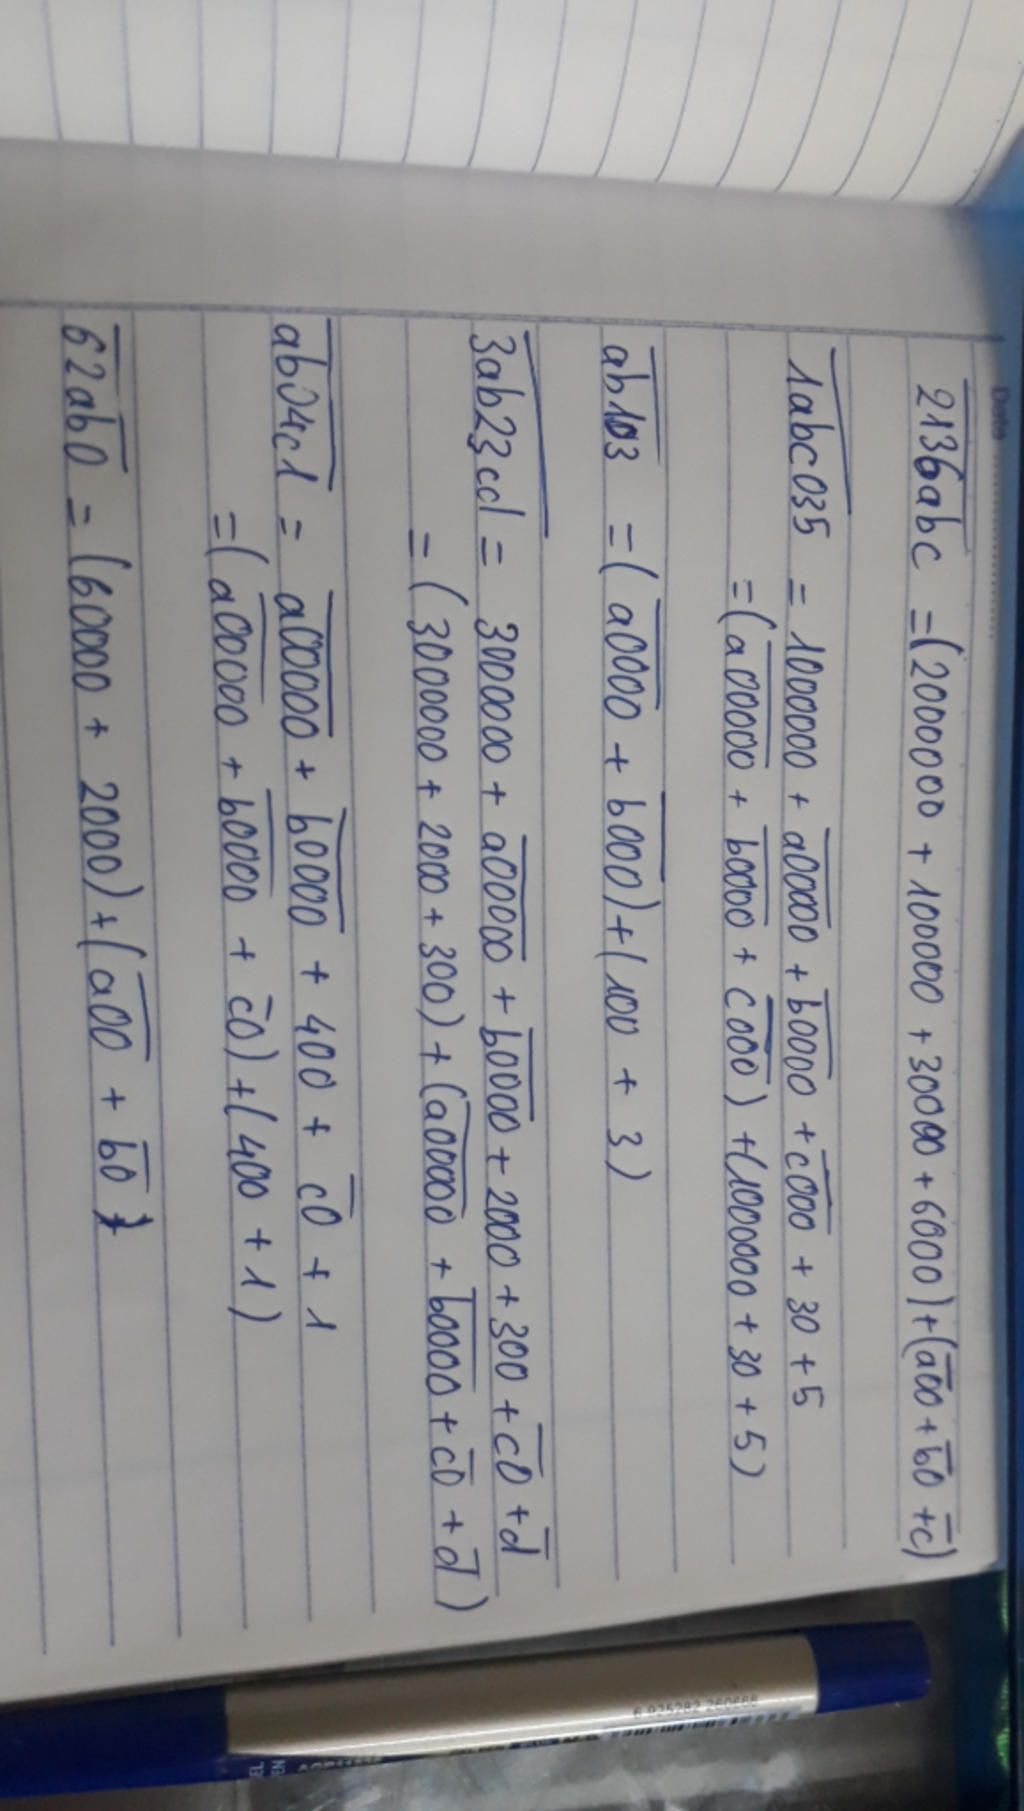 Date
2136abc = (2000000 + 100000 + 30000 + 6000) + (a00 + b0 + c)
1abc035 = 1000000 + a00000 + b0000 + c000 + 30 + 5
= (a00000 + b0000 + c000) + (1000000 + 30 + 5)
ab103 = (a0000 + b000) + (100 + 3)
3ab23cd = 3000000 + a00000 + b0000 + 2000 + 300 + c0 + d
= (3000000 + 2000 + 300) + (a00000 + b0000 + c0 + d)
ab04c1 = a00000 + b0000 + 400 + c0 + 1
= (a00000 + b0000 + c0) + (400 + 1)
62ab0 = (60000 + 2000) + (a00 + b0)
6 935282 260668